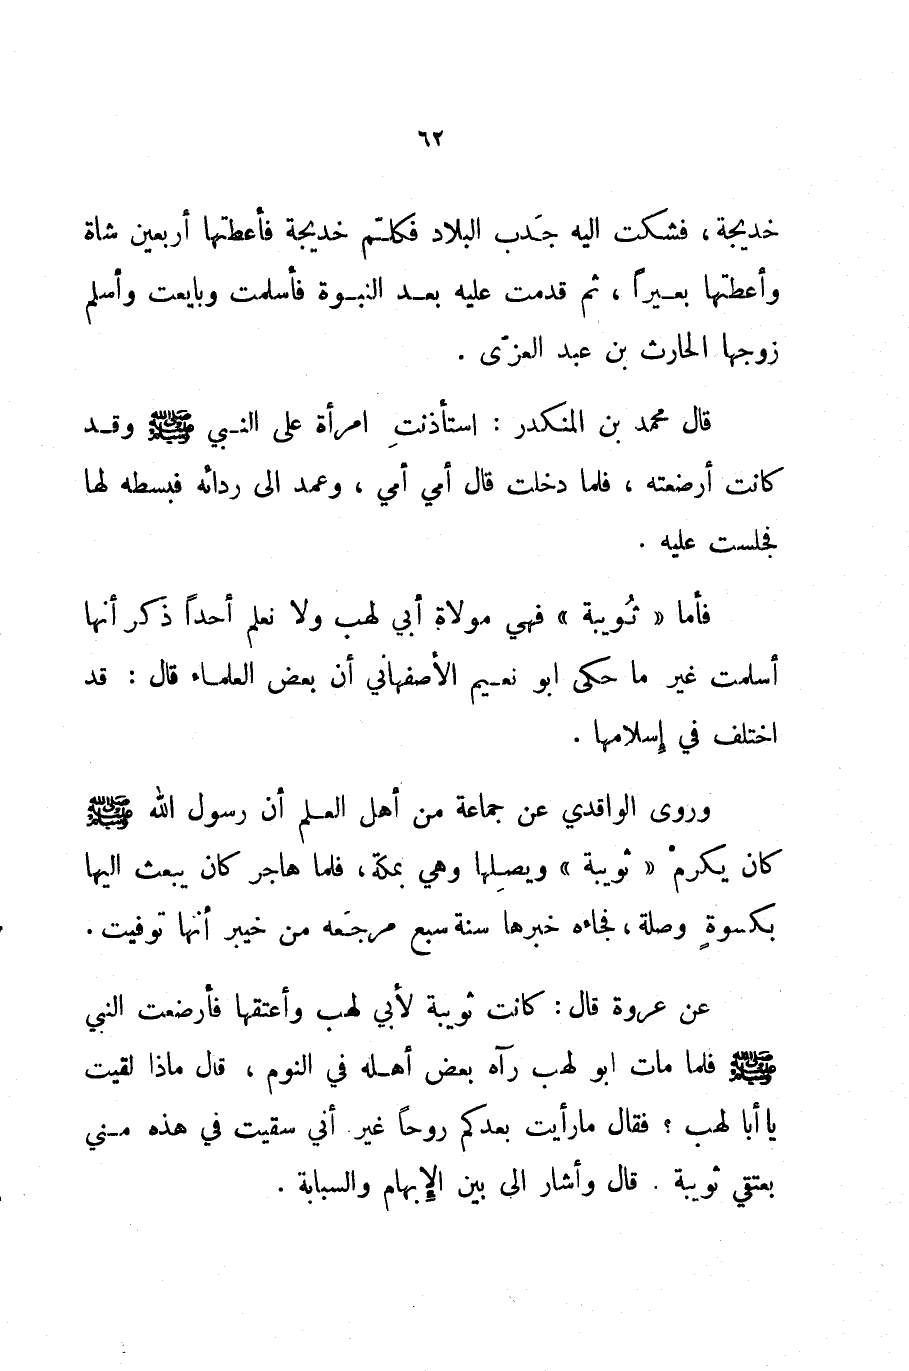 ٦٢
خديجة ، فشكت اليه جَدب البلاد فكلّم خديجة فأعطتها أربعين شاة
وأعطتها بعيراً ، ثم قدمت عليه بعد النبوة فأسلمت وبايعت وأسلم
زوجها الحارث بن عبد العزّى .
قال محمد بن المنكدر : استأذنتِ امرأة على النبي ﷺ وقد
كانت أرضعته ، فلما دخلت قال أمي أمي ، وعمد الى ردائه فبسطه لها
فجلست عليه .
فأما « ثُويبة » فهي مولاة أبي لهب ولا نعلم أحداً ذكر أنها
أسلمت غير ما حكى ابو نعيم الأصفهاني أن بعض العلماء قال : قد
اختلف في إسلامها .
وروى الواقدي عن جماعة من أهل العلم أن رسول الله ﷺ
كان يكرمْ « ثويبة » ويصِلها وهي بمكة ، فلما هاجر كان يبعث اليها
بكسوةٍ وصلة ، فجاءه خبرها سنة سبع مرجَعه من خيبر أنها توفيت .
عن عروة قال : كانت ثويبة لأبي لهب وأعتقها فأرضعت النبي
ﷺ فلما مات ابو لهب رآه بعض أهله في النوم ، قال ماذا لقيت
يا أبا لهب ؟ فقال مارأيت بعدكم روحاً غير أني سقيت في هذه مني
بعتقي ثويبة . قال وأشار الى بين الإبهام والسبابة .